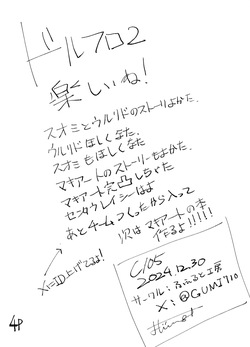 ドルフロ2
楽しいね!
スオミとウルリドのストーリよかた.
ウルリドほしくなた.
スオミもほしくなた
マキアートのストーリーもよかた.
マキアート完凸しちくた
センタウレイシーはよ
あとチームつくったから入って
次はマキアートの本
作るよ!!!!!
X:ID上げてるよ!
C105
2024.12.30
サークル:ふふると工房
X:@GUMI710
4P